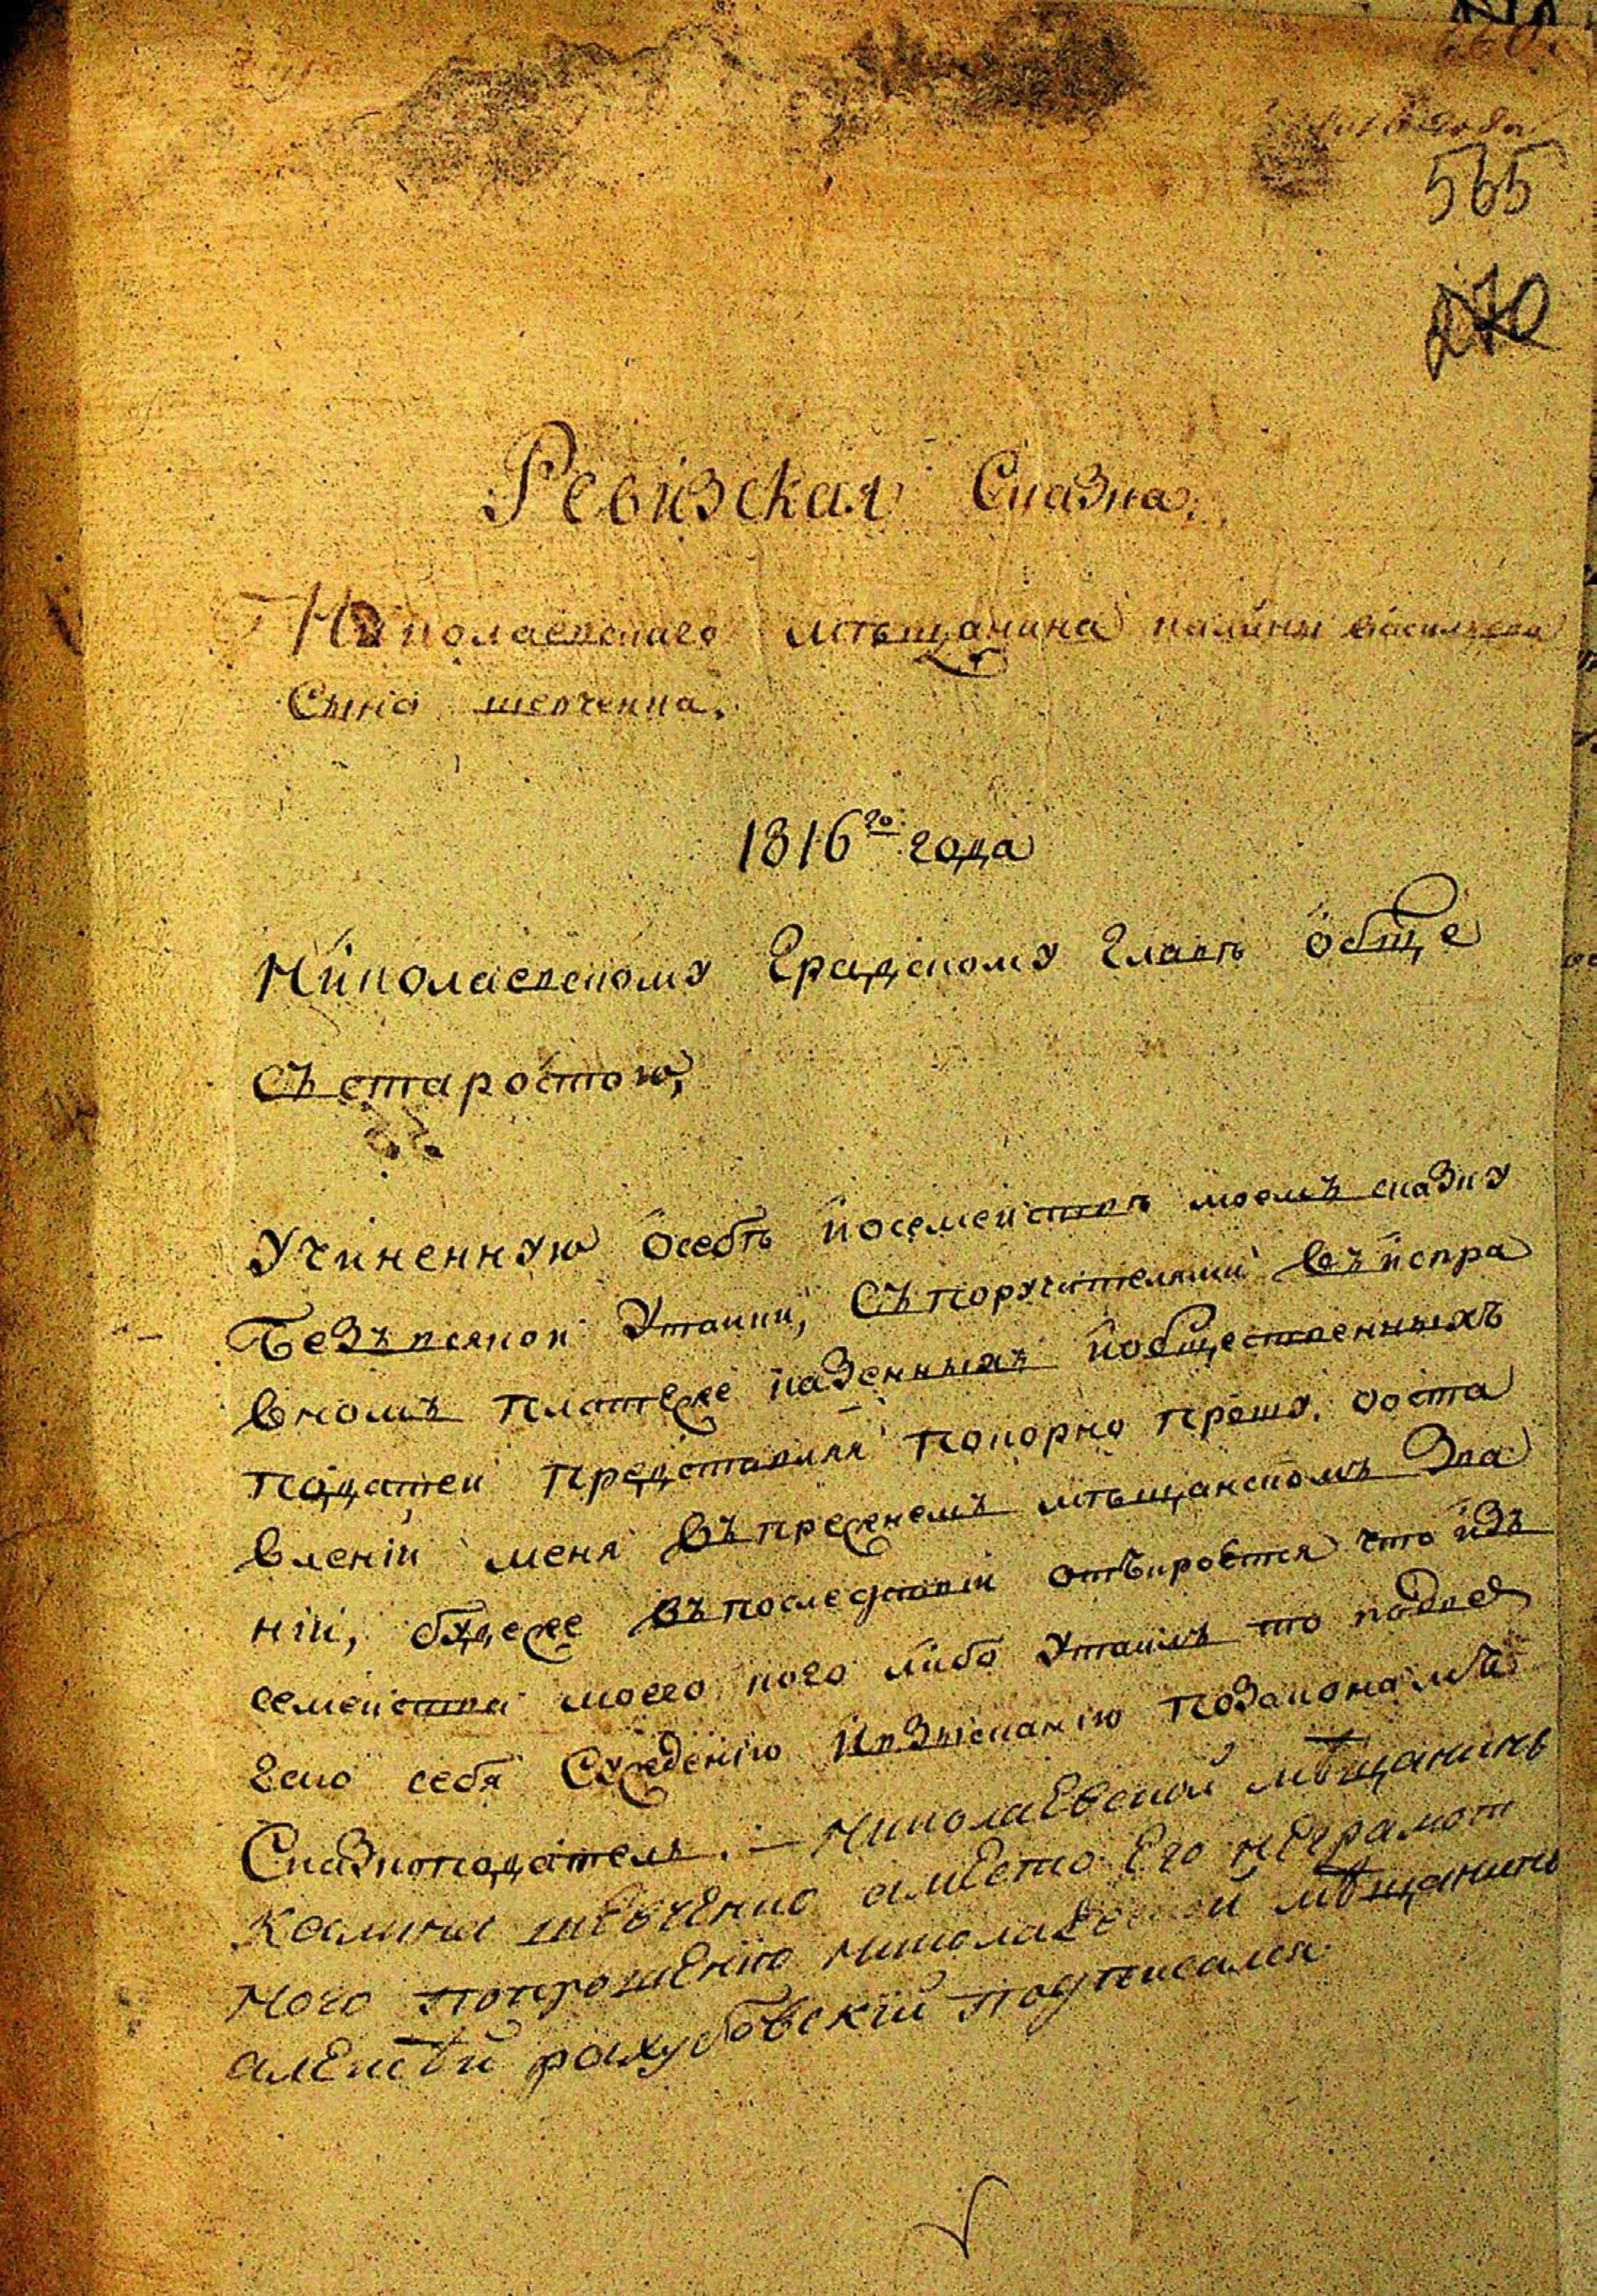 565
Ревизская Сказка
Николаевскаго мѣщанина калины васильева
Сына шевченка.
1816го года
Николаевскому Градскому Главѣ обще
съ старостою,
Учиненную особѣ и о семействѣ моемъ сказку
безъ всякой Утайки, Съ поручителями въ испра
вномъ платеже казенныхъ и общественныхъ
податей представляя покорно прошу, ооста
вленіи меня въ прежнемъ мѣщанскомъ Зва
ніи, буде же въ последствіи откироется что изъ
семейства моего кого либо Утаилъ то подве
гаю себя Сужденію и взысканію по законамъ
Сказкоподатель. — Николаевской мѣщанинъ
Калина шевченко амѣсто Его неграмот
ного по прошенію николаевской мѣщанинъ
алексѣй рахубовскій подписался